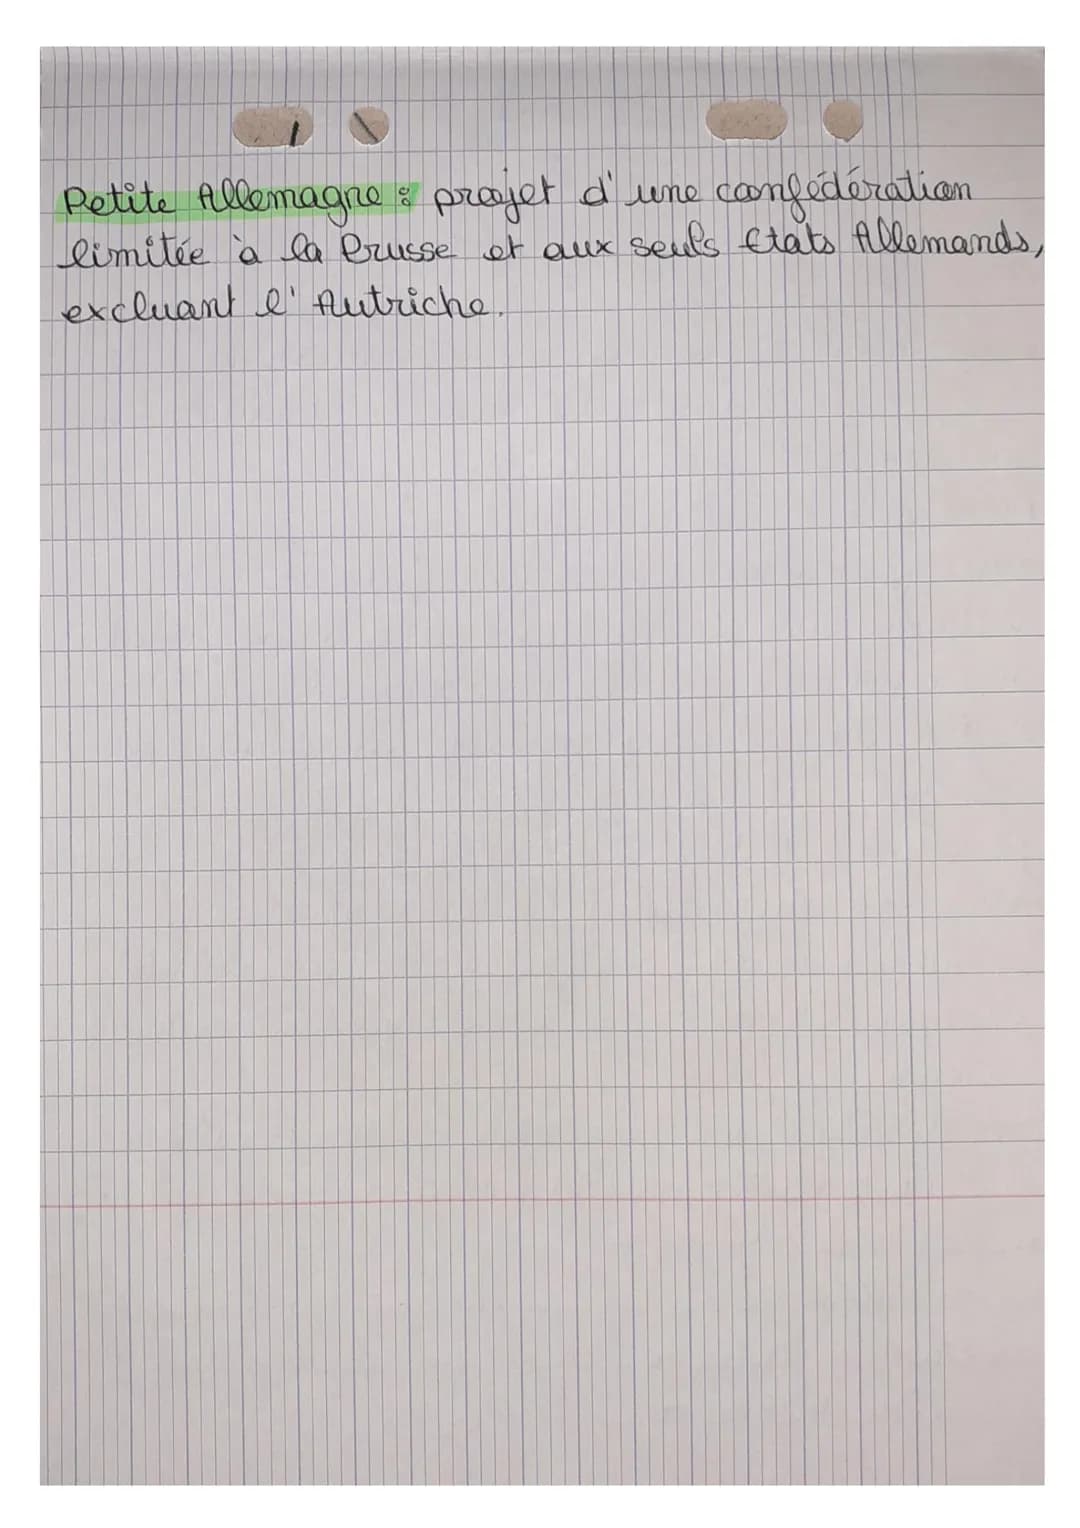 Petite Allemagne : projet d'une confédération
limitée à la Prusse et aux seuls Etats Allemands,
excluant l'Autriche.